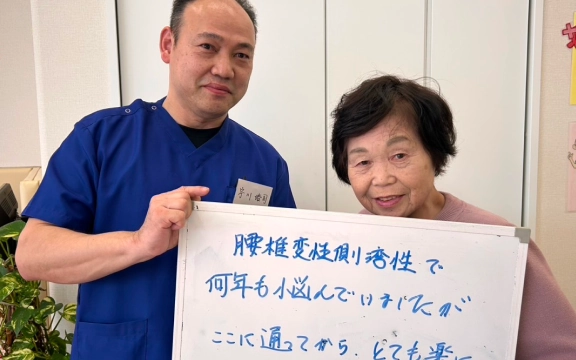 腰椎変性側湾性で
何年も悩んでいましたが
ここに通ってから、とても楽に